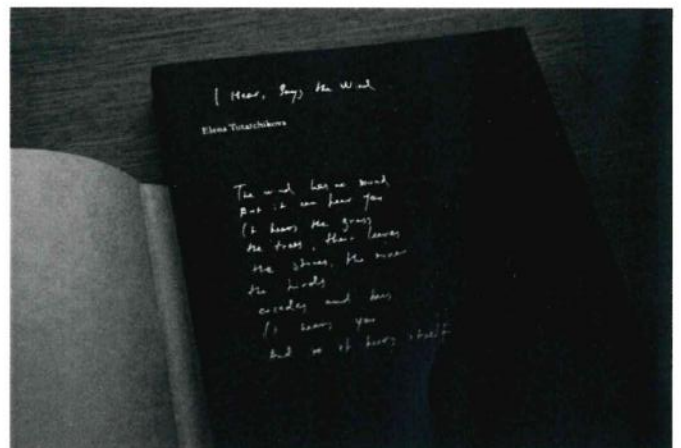 I Hear, Says the Wind
Elena Tutatchikova
The wind has no sound
But it can hear you
It hears the grass
the trees, their leaves
the stones, the river
the birds
cicadas and bees
It hears you
And so it hears itself